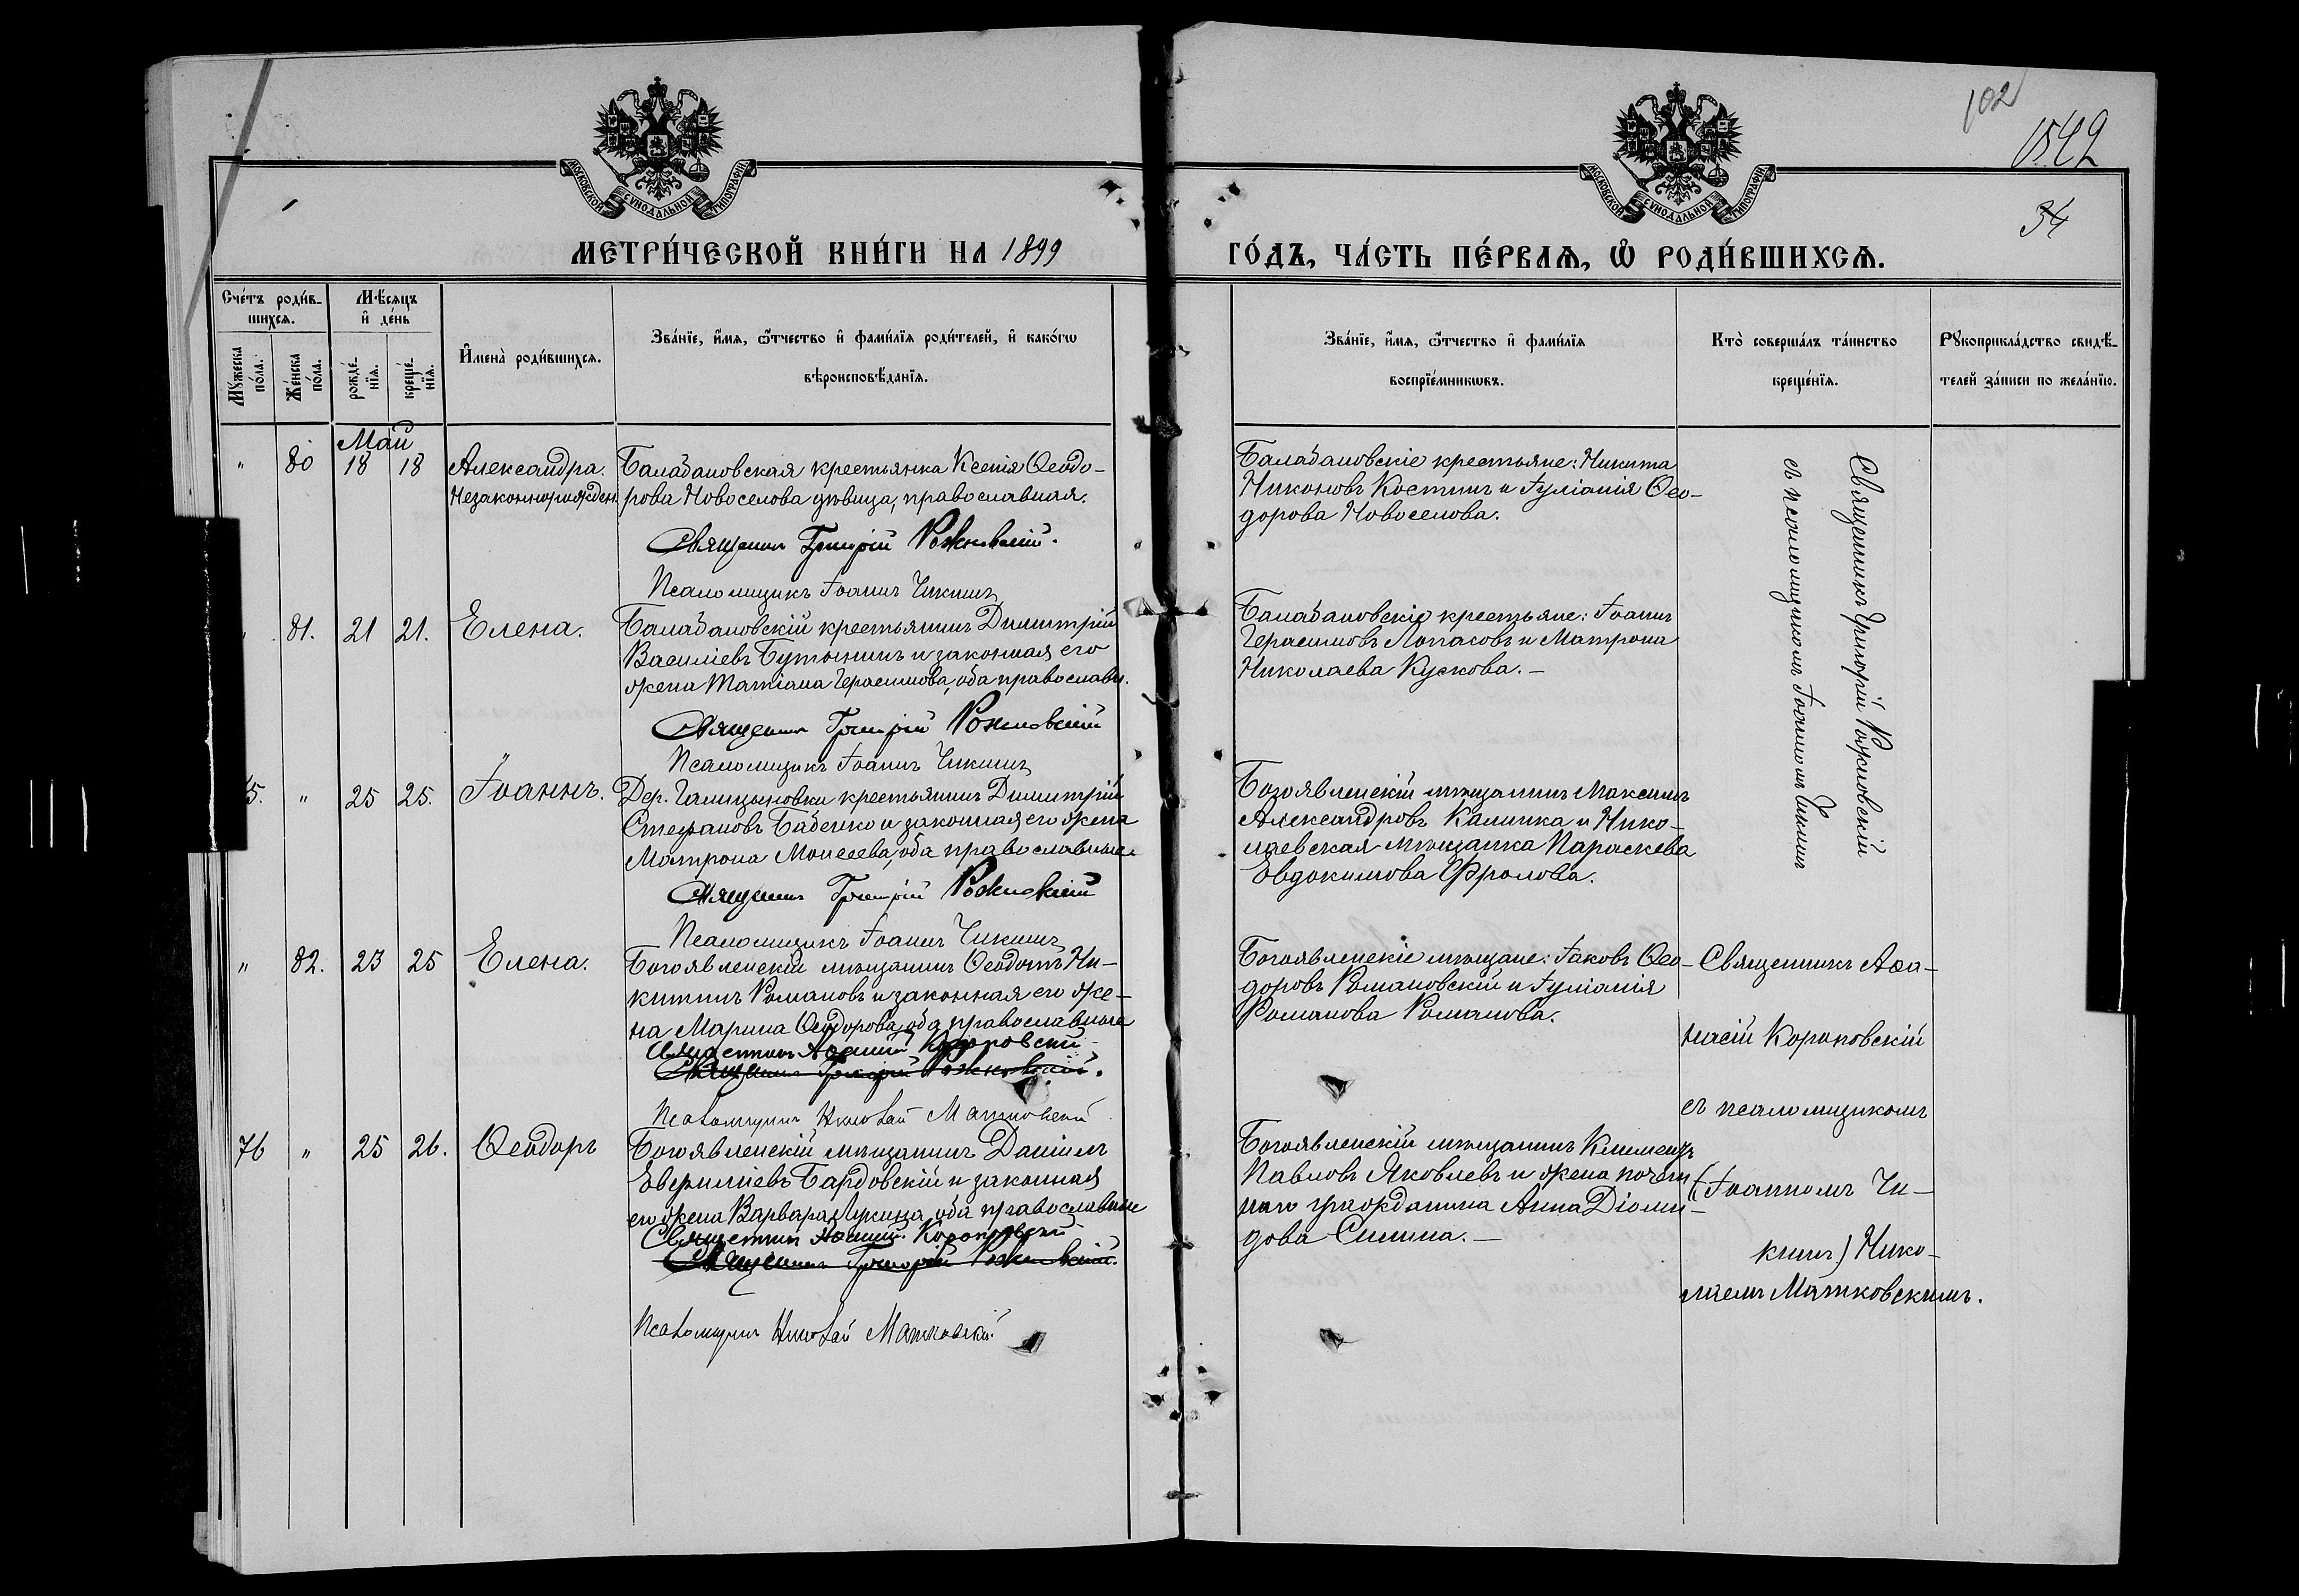 102
1542
34
МОСКОВСКОЙ СѴНОДАЛЬНОЙ ТИПОГРАФІИ
МОСКОВСКОЙ СѴНОДАЛЬНОЙ ТИПОГРАФІИ
МЕТРИ́ЧЕСКОЙ КНИ́ГИ НА 1899
ГО́ДЪ, ЧА́СТЬ ПЕ́РВАѦ, Ѡ РОДИ́ВШИХСѦ.
Сче́тъ роди́в-
шихсѧ.
Мѣ́сѧцъ
и҆ де́нь
Мꙋ́жеска по́ла.
Же́нска по́ла.
рожде́нїѧ.
креще́нїѧ.
И҆мена̀ роди́вшихсѧ.
Зва́нїе, и҆́мѧ, ѻ҆́тчество и҆ фами́лїѧ роди́телей, и҆ како́гѡ
вѣроисповѣ́данїѧ.
Зва́нїе, и҆́мѧ, ѻ҆́тчество и҆ фами́лїѧ
воспрїе́мникѡвъ.
Кто̀ соверша́лъ та́инство
креще́нїѧ.
Рꙋкоприкла́дство свидѣ́-
телей за́писи по жела́нїю.
Май
" 80 18 18 Александра.
Незаконнорожден.
Балабановская крестьянка Ксенія Ѳеодо-
рова Новоселова дѣвица, православная.
Священникъ Григорій Рожновскій.
Псаломщикъ Іоаннъ Чикинъ
Балабановскіе крестьяне: Никита
Никоновъ Костинъ и Іуліанія Ѳео-
дорова Новоселова.
Священникъ Григорій Рожновскій
съ псаломщикомъ Іоанномъ Чикинъ
81. 21 21. Елена.
Балабановскій крестьянинъ Димитрій
Василіевъ Бутынинъ и законная его
жена Татіана Герасимова, оба православн.
Священникъ Григорій Рожновскій
Псаломщикъ Іоаннъ Чикинъ
Балабановскіе крестьяне: Іоаннъ
Герасимовъ Лопасовъ и Матрона
Николаева Кускова. –
5. " 25 25. Іоаннъ.
Дер. Галицыновки крестьянинъ Димитрій
Стефановъ Бабенко и законная его жена
Матрона Моисеева, оба православные
Священникъ Григорій Рожновскій
Псаломщикъ Іоаннъ Чикинъ
Богоявленскій мѣщанинъ Максимъ
Александровъ Калинка и Нико-
лаевская мѣщанка Параскева
Евдокимова Фролова.
" 82. 23 25 Елена.
Богоявленскій мѣщанинъ Ѳеодотъ Ни-
китинъ Романовъ и законная его же-
на Марина Ѳеодорова, оба православные
Священникъ Короповскій
Священникъ Григорій Рожновскій.
Псаломщикъ Николай Матковскій
Богоявленскіе мѣщане: Іаковъ Ѳео-
доровъ Романовскій и Іуліанія
Романова Романова.
Священникъ Аѳа-
насій Короповскій
съ псаломщикомъ
(Іоанномъ Чи-
кинъ) Нико-
лаемъ Матковскимъ.
76 " 25 26. Ѳеодоръ
Богоявленскій мѣщанинъ Даніилъ
Бардовскій и законная
его жена Варвара Лукина, оба православные
Священникъ Короповскій
Священникъ Григорій Рожновскій.
Псаломщикъ Николай Матковскій
Богоявленскій мѣщанинъ Климентъ
Павловъ Яковлевъ и жена почетн
наго гражданина Анна Діоми-
дова Синина. –